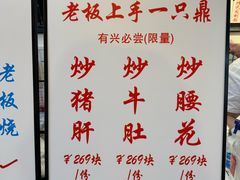 老板上手一只鼎
有兴必尝(限量)
炒猪肝
¥269块/1份
炒牛肚
¥269块/1份
炒腰花
¥269块/1份
老板烧